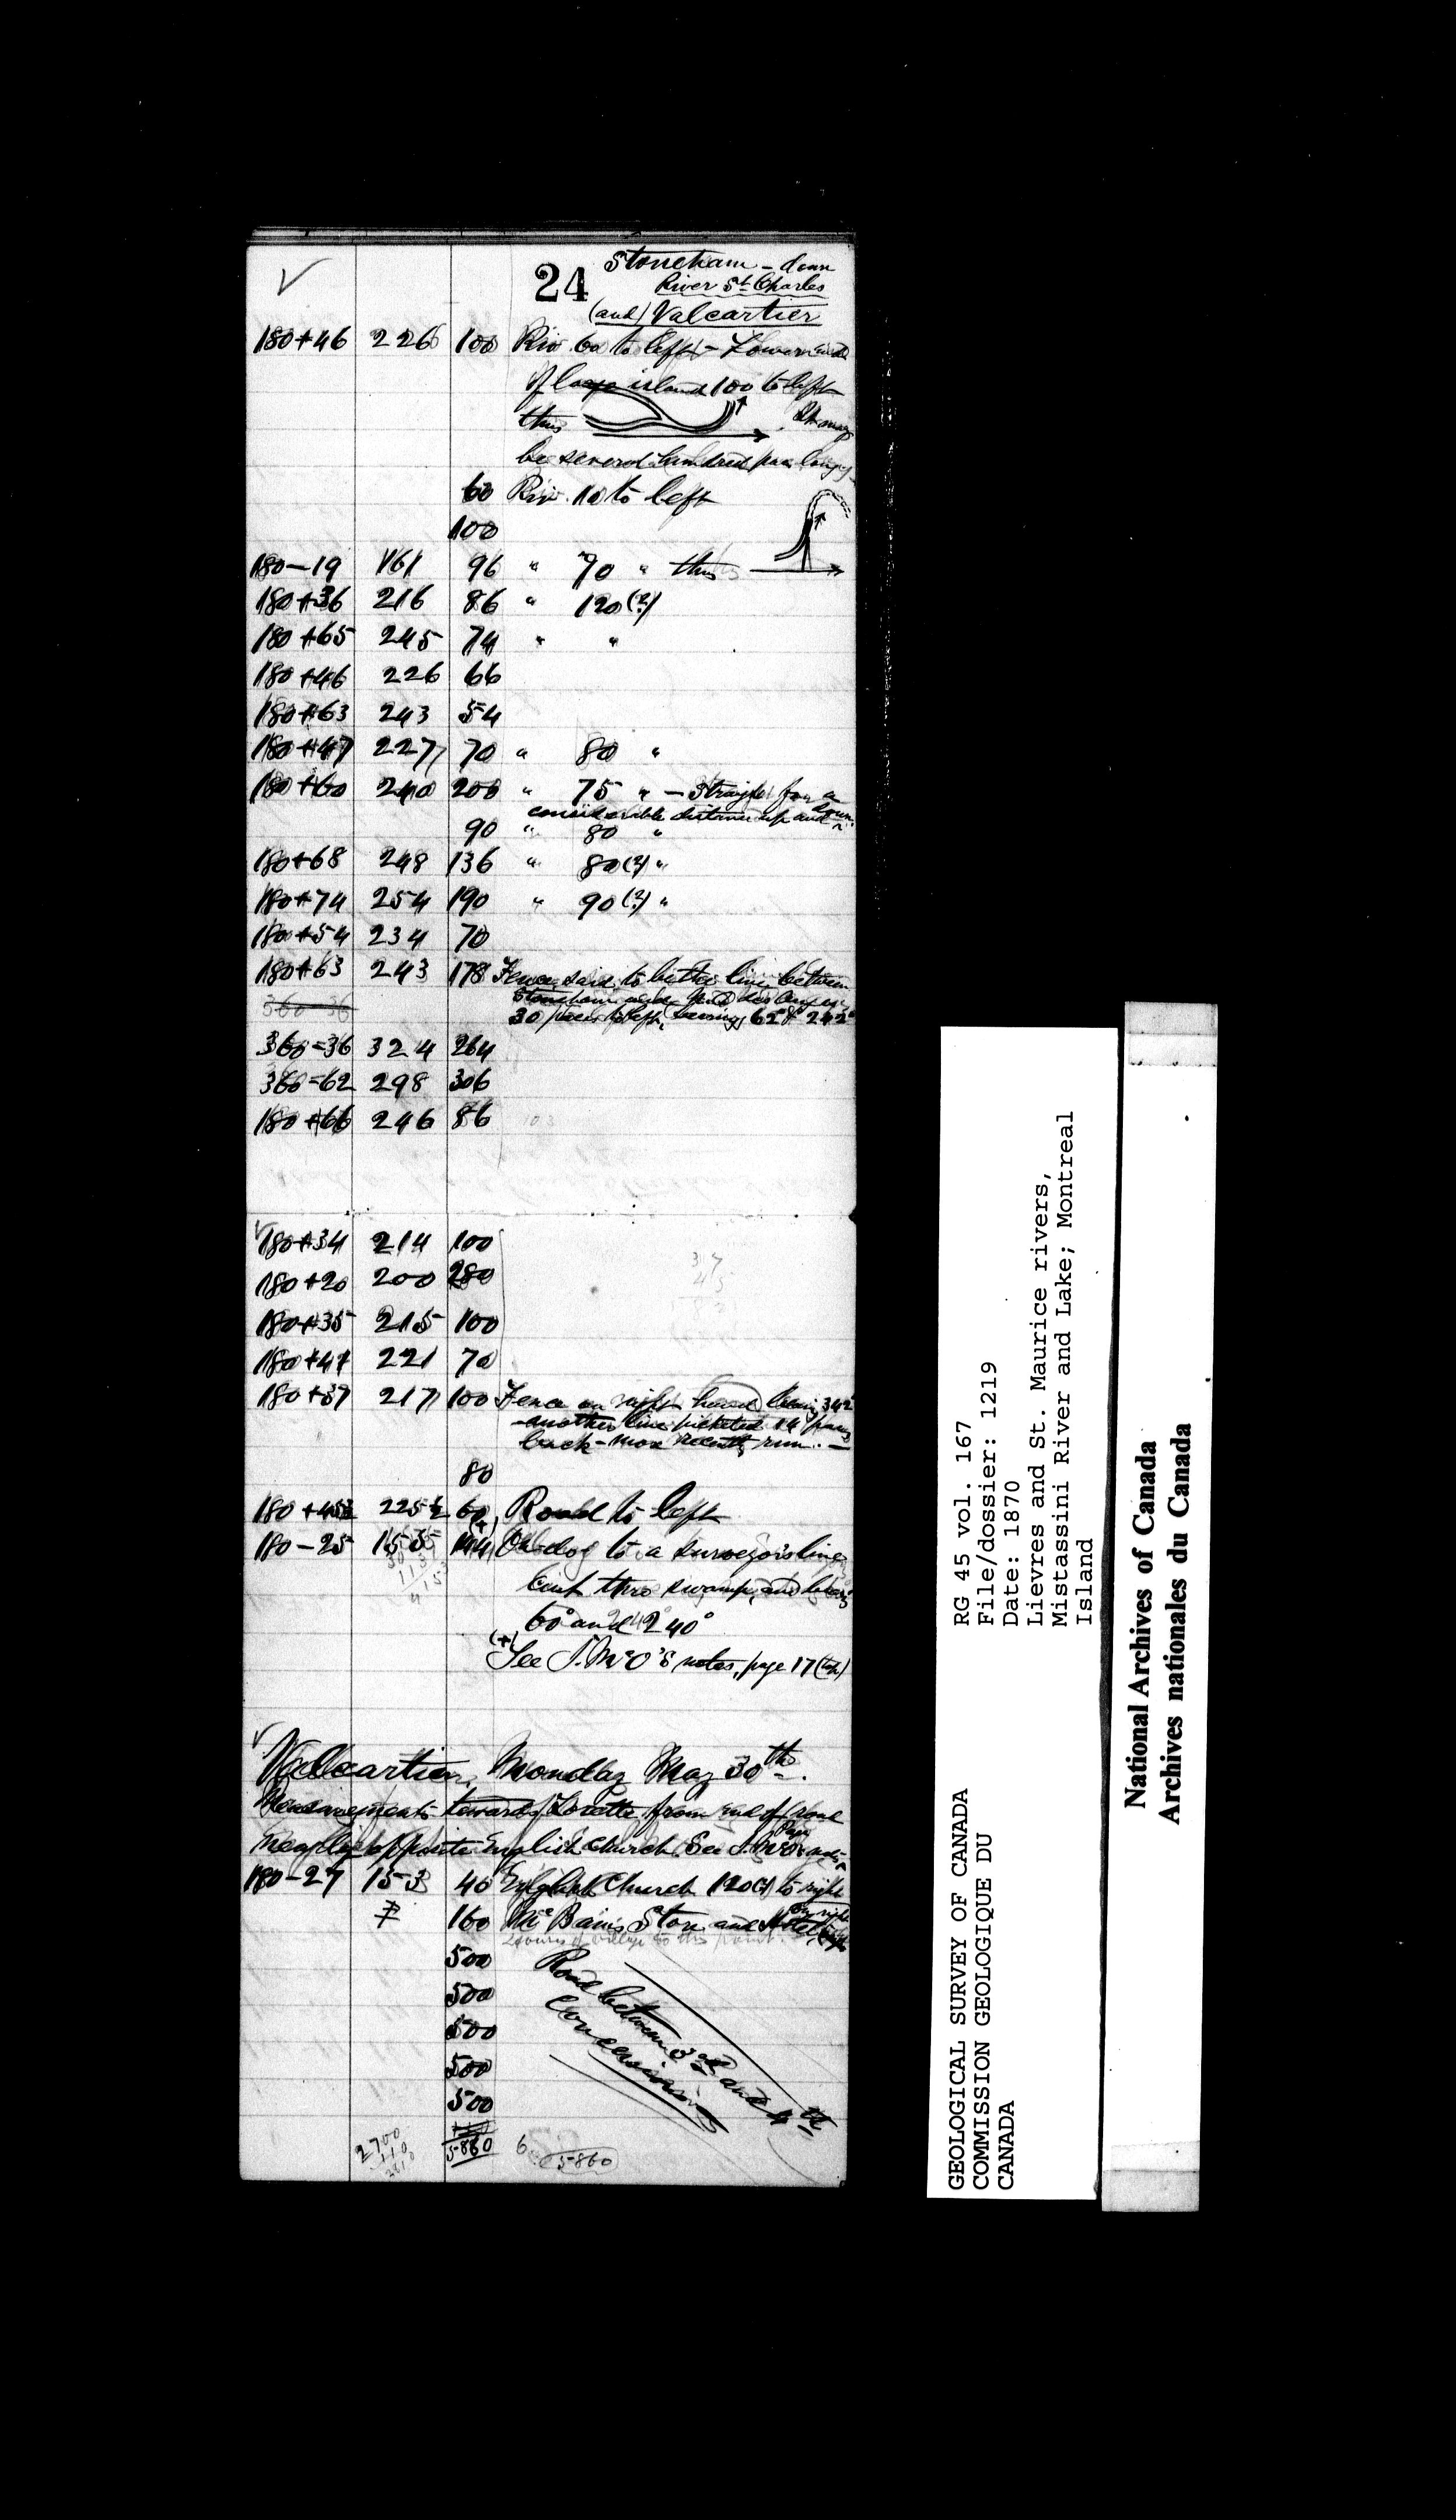 24 Stoneham - down
River St. Charles
(and) Valcartier
180+46 226 100 Riv. 60 to left - Lower end
of large island 100 to left
thus
be several hundred pac. long
60 Riv. 10 to left
100
180-19 161 96 " 70 " thus
180+36 216 86 " 120(?)
180+65 245 74 " "
180+46 226 66
180+63 243 54
180+47 227 70 " 80 "
180+60 240 200 " 75 " - Straight for a
considerable distance up and down
90 " 80 "
180+68 248 136 " 80(?) "
180+74 254 190 " 90(?) "
180+54 234 70
180+63 243 178 Fence said to be the line between
Stoneham and
360-36 30 paces to left, bearing 62° & 242°
360=36 324 264
360=62 298 306
180+66 246 86
180+34 214 100
180+20 200 280
180+35 215 100
180+41 221 70
180+37 217 100 Fence on right hand bearing 342
-another line picketed 14 paces
back - more recently run. -
80
180+45½ 225½ 60 Road to left
180-25 155 144 to a surveyor's line
cut thro swamp, and bearing
60° and 240°
(+)
See J. McO's notes, page 17 (top)
Valcartier, Monday May 30th.
Measurements towards Lorette from end of road
nearly opposite English Church. See J. McO's
180-27 153 40 English Church 120(?) to right
160 McBain's Store and Hotel on right
of village to this point.
500 Road between 3rd and 4th
500 Concessions
500
500
500
2700
110
2810
5860
6 5860
GEOLOGICAL SURVEY OF CANADA
COMMISSION GEOLOGIQUE DU
CANADA
RG 45 vol. 167
File/dossier: 1219
Date: 1870
Lievres and St. Maurice rivers,
Mistassini River and Lake; Montreal
Island
National Archives of Canada
Archives nationales du Canada